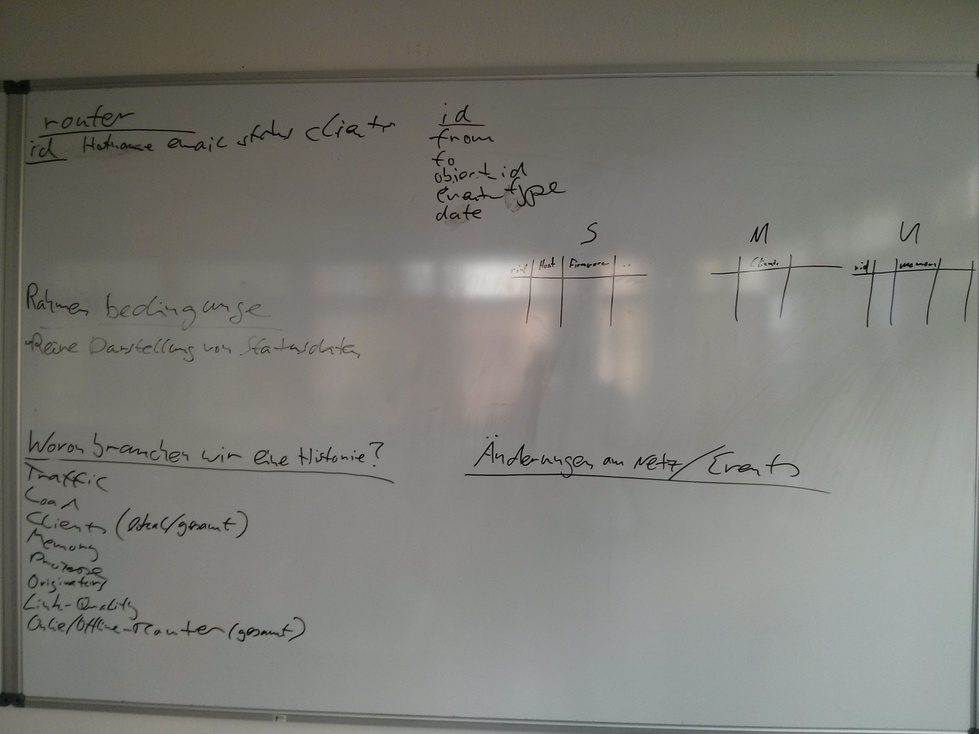 router
id Hostname email status clients
id
from
to
object_id
event_type
date
S M U
rid Host Firmware ...
Clients
rid memory
Rahmenbedingunge
- Reine Darstellung von Statusdaten
Wovon brauchen wir eine Historie?
Traffic
Load
Clients (lokal/gesamt)
Memory
Prozesse
Originators
Link-Quality
Online/Offline-Router (gesamt)
Änderungen am Netz/Events